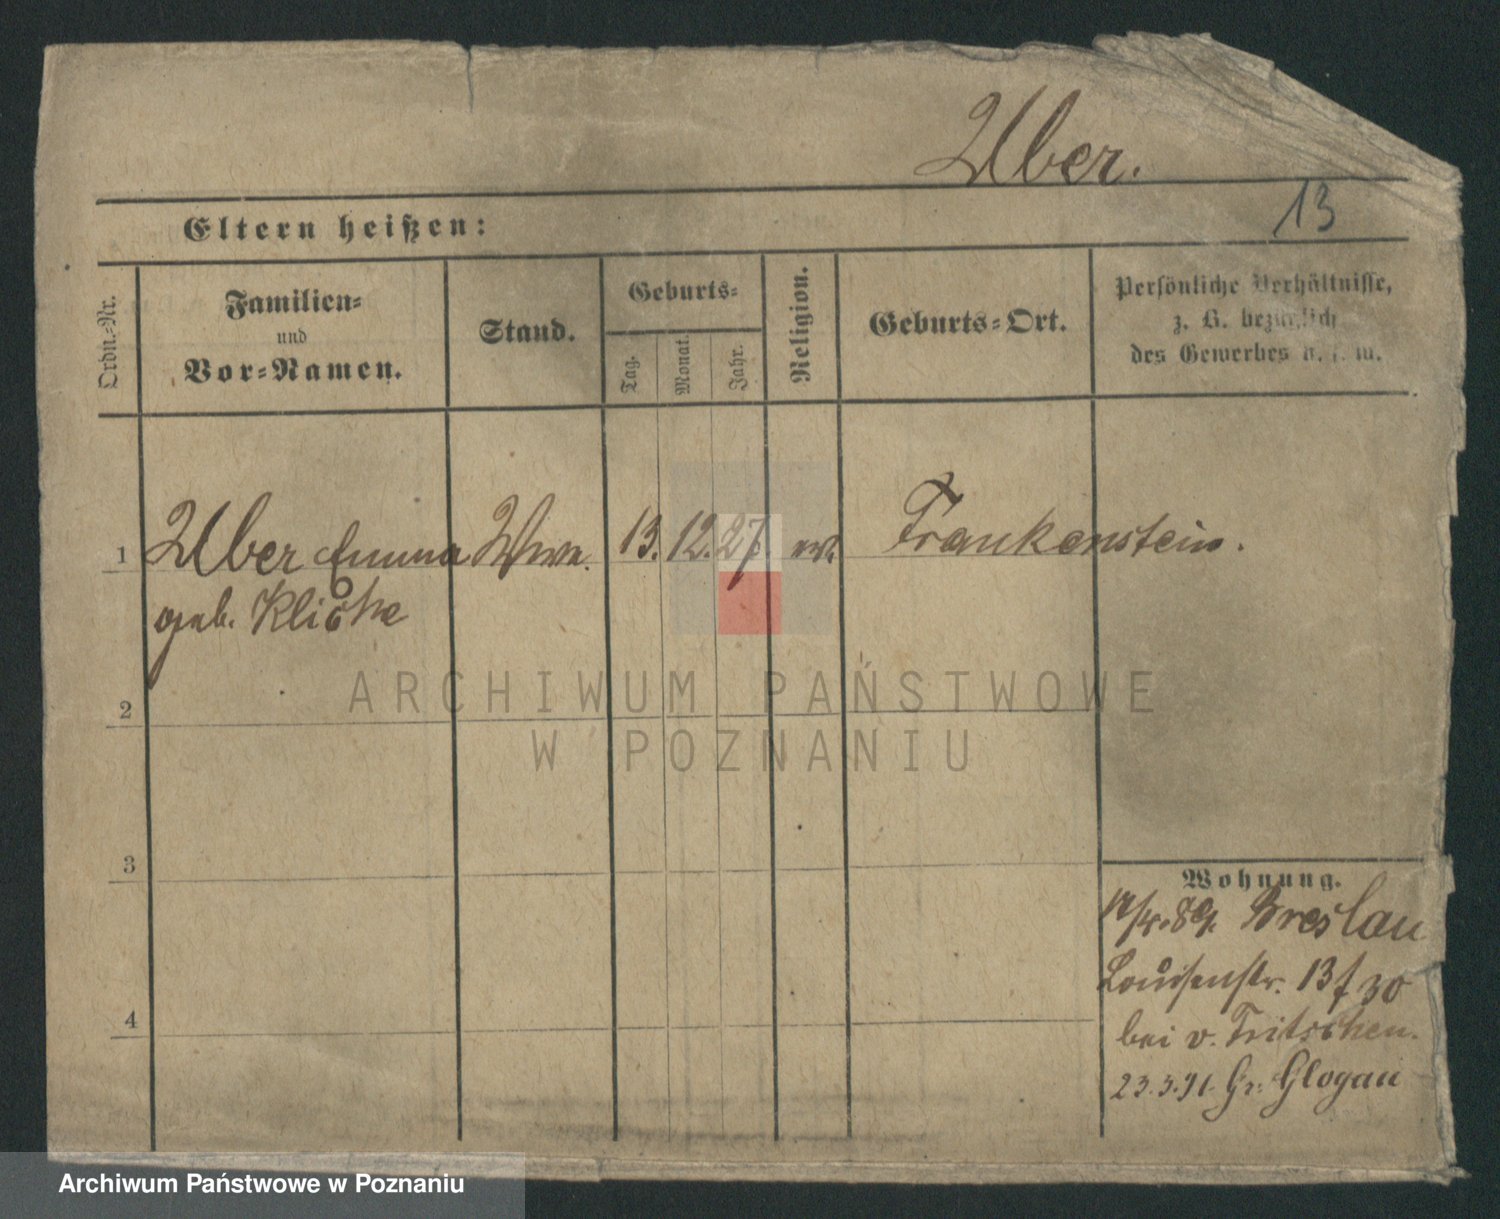 Uber.
13
Eltern heißen:
Ordn.-Nr.
Familien-
und
Vor-Namen.
Stand.
Geburts-
Tag.
Monat.
Jahr.
Religion.
Geburts-Ort.
Persönliche Verhältnisse,
z. B. bezüglich
des Gewerbes u. s. w.
1 Uber Emma Wwe. 13. 12. 27. ev. Frankenstein.
geb. Klicke
2
3
4
Wohnung.
89. Breslau
Louisenstr. 13 30
bei v.
23.3.91. Gr. Glogau
ARCHIWUM PAŃSTWOWE
W POZNANIU
Archiwum Państwowe w Poznaniu